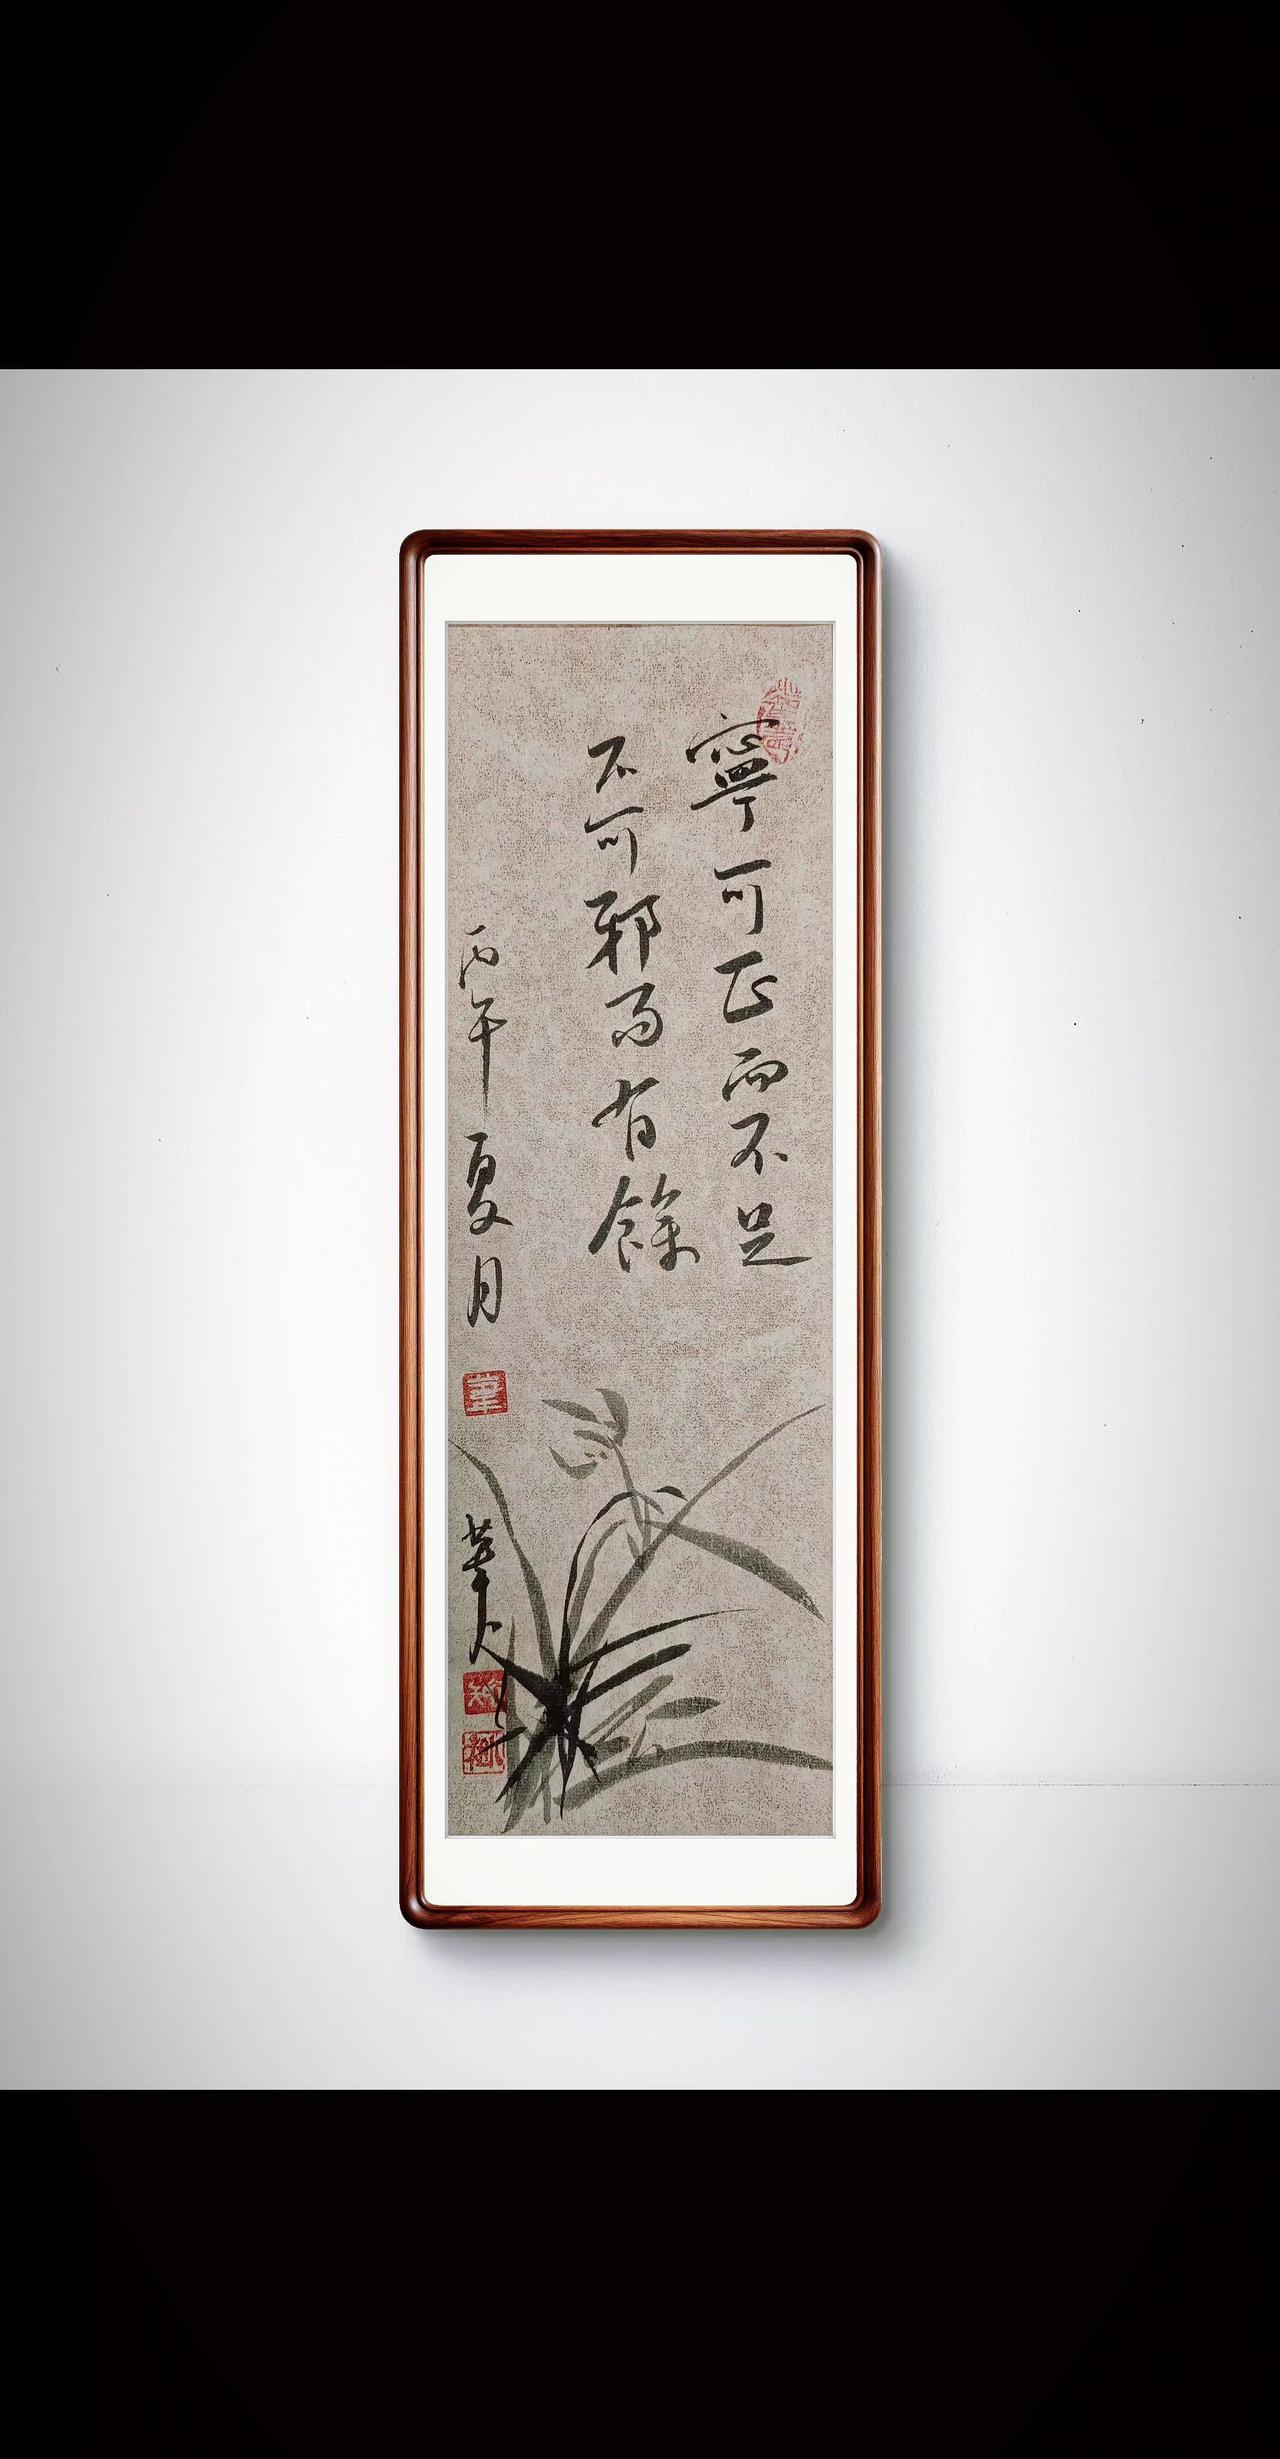 寧可正而不足
不可邪而有餘
丙午夏月